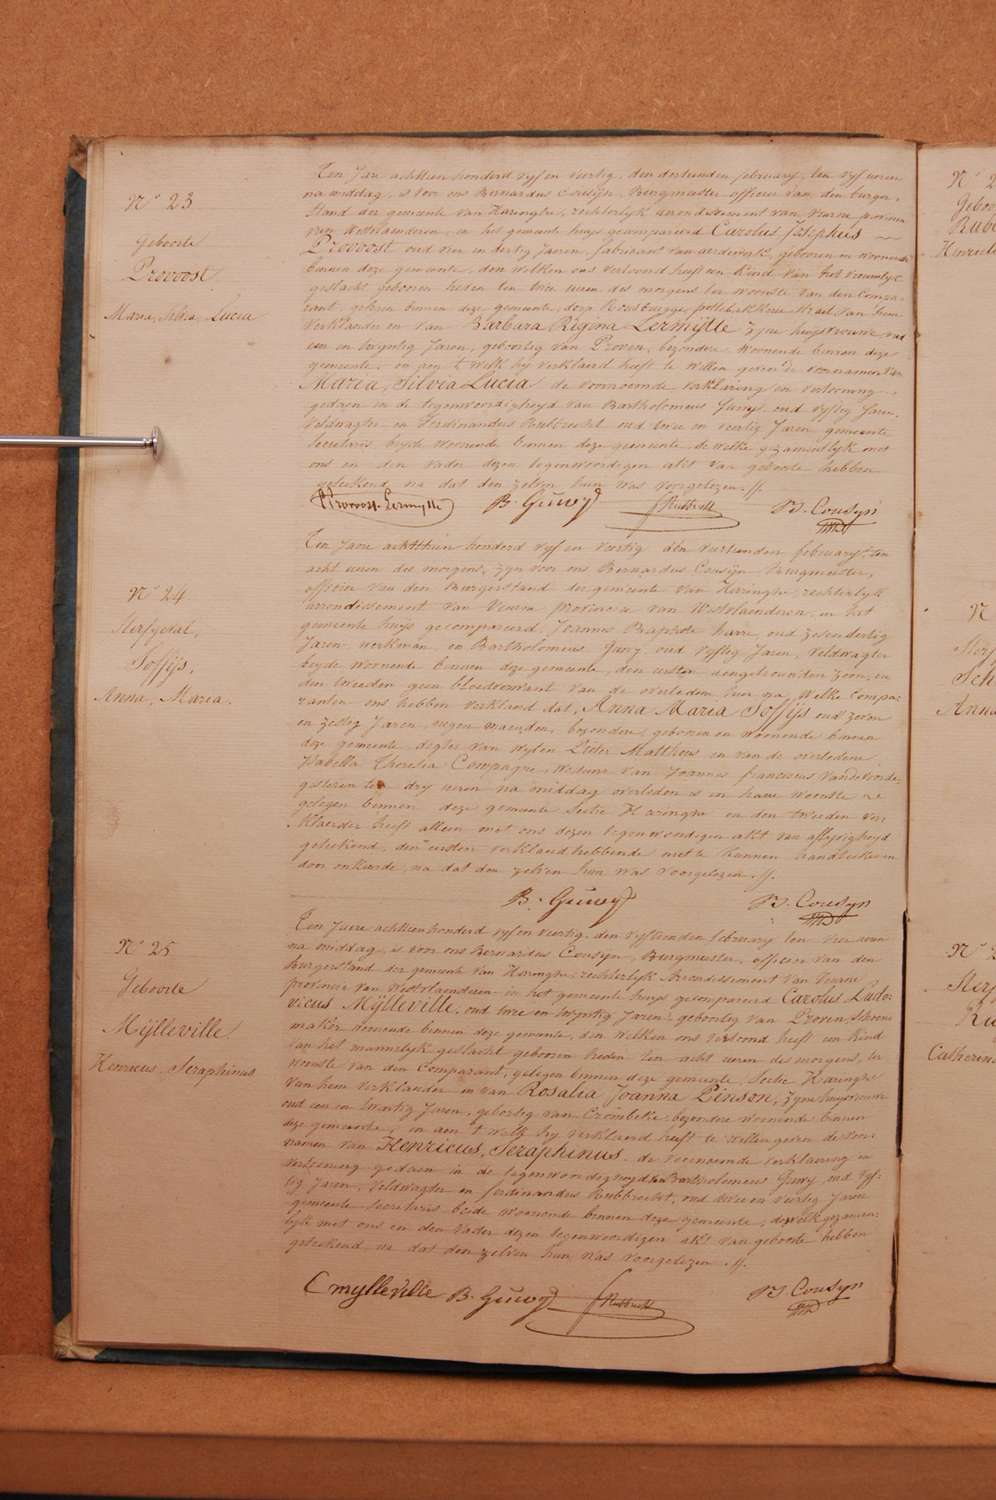 N° 23
Geboorte
Provoost.
Maria, Silvia, Lucia
Ten Jare achttien honderd vyf en veertig, den dertienden february, ten vyf uren
na middag, is voor ons Bernardus Cousijn, Burgmeester officier van den burger-
stand der gemeente van Haringhe, rechterlyk arrondissement van Veurne provincie
van Westvlaenderen, in het gemeente huys gecompareerd Carolus Josephus
Provoost oud vier en dertig Jaren, fabrikant van aerdewerk, geboren en woonende
binnen deze gemeente, den welken ons vertoond heeft een Kind van het vrouwlyk
geslacht geboren heden ten twee uren des morgens ter woonste van den Compa-
rant, gelegen binnen deze gemeente, dorp Rousbrugge pottebakkerie straet van hem
Verklaerder en van Barbara Regina Lermytte Zyne huysvrouwe oud
een en twyntig Jaren, geboortig van Proven, bezondere woonende binnen deze
gemeente, en aen 't welk hy verklaerd heeft te willen geven de voornamen van
Maria, Silvia Lucia de voornoemde verklaering en vertooning
gedaen in de tegenwoordigheyd van Bartholomeus Guwy, oud vyftig Jaren,
Veldwagter en Ferdinandus Rubbrecht oud twee en veertig Jaren gemeente
Secretaris beyde woonende binnen deze gemeente, de welke gezamentlyk met
ons en den vader dezen tegenwoordigen akt van geboorte hebben
geteekend na dat den zelven hun was voorgelezen ./.
Provoost-Lermytte B. Guwy F Rubbrecht B. Cousyn
N° 24
Sterfgeval,
Soffijs,
Anna, Maria.
Ten Jaere achttien honderd vyf en veertig den veertienden february, ten
acht uren des morgens, zyn voor ons Bernardus Cousijn Burgmeester,
officier van den Burgerstand der gemeente van Haringhe, rechterlyk
arrondissement van Veurne provincie van Westvlaenderen, in het
gemeente huys gecompareerd Joannes Baptiste oud zes en dertig
Jaren werkman, en Bartholomeus Guwy oud vyftig Jaren, Veldwagter
beyde woonende binnen deze gemeente, den eersten aengetrouwden zoon, en
den tweeden geen bloedverwant van de overledene hier na, welke Compa-
ranten ons hebben verklaerd dat, Anna Maria Soffijs oud zeven
en zestig Jaren, negen maenden, bezondere, geboren en woonende binnen
deze gemeente, dogter van wylen Pieter Mattheus en van de overledene
Isabella Theresia Compagne, Weduwe van Joannes franciscus Vandevoorde,
gisteren ten dry uren na middag overleden is in haere woonste
gelegen binnen deze gemeente Sectie Haringhe en den tweeden ver-
klaerder heeft alleen met ons dezen tegenwoordigen akt van aflyvigheyd
geteekend, den eersten verklaerd hebbende niet te kunnen handteekenen
door onkunde, na dat den zelven hun was voorgelezen ./.
B. Guwy B. Cousyn
N° 25
Geboorte
Mijlleville
Henricus Seraphinus
Ten Jaere achttien honderd vyf en veertig, den vyftienden february ten vier uren
na middag, is voor ons Bernardus Cousyn, Burgmeester, officier van den
Burgerstand der gemeente van Haringhe, rechterlyk Arrondissement van Veurne
provincie van Westvlaenderen in het gemeente huys gecompareerd Carolus Ludo-
vicus Mijlleville, oud twee en twyntig Jaren, geboortig van Proven, schoen-
maker woonende binnen deze gemeente, den welken ons vertoond heeft een kind
van het mannelyk geslacht geboren heden ten acht uren des morgens, ter
woonste van den Comparant, gelegen binnen deze gemeente, Sectie Haringhe
van hem Verklaerder en van Rosalia Joanna Pinson, Zyne huysvrouwe
oud een en twintig Jaren, geboortig van Crombeke, bezondere woonende binnen
deze gemeente, en aen 't welk hy verklaerd heeft te willen geven de voor-
namen van Henricus, Seraphinus de voornoemde verklaering en
vertooning gedaen in de tegenwoordigheyd van Bartholomeus Guwy, oud vyf-
tig Jaren, Veldwagter en ferdinandus Rubbrecht, oud twee en veertig Jaren
gemeente Secretaris beide woonende binnen deze gemeente, de welke gezamen-
tlyk met ons en den vader dezen tegenwoordigen akt van geboorte hebben
geteekend na dat den zelven hun was voorgelezen ./.
C mylleville B. Guwy F Rubbrecht B. Cousyn
Catherin